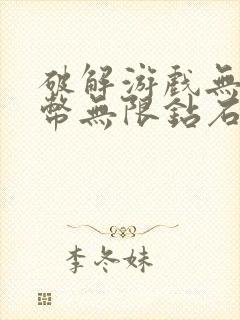 破解游戲無
幣無限鉆石
李冬妹